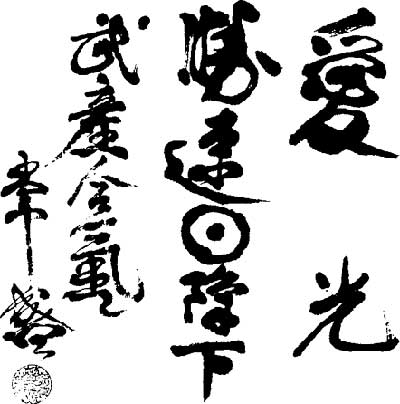 愛光
勝速日降下
武産合氣
常盛